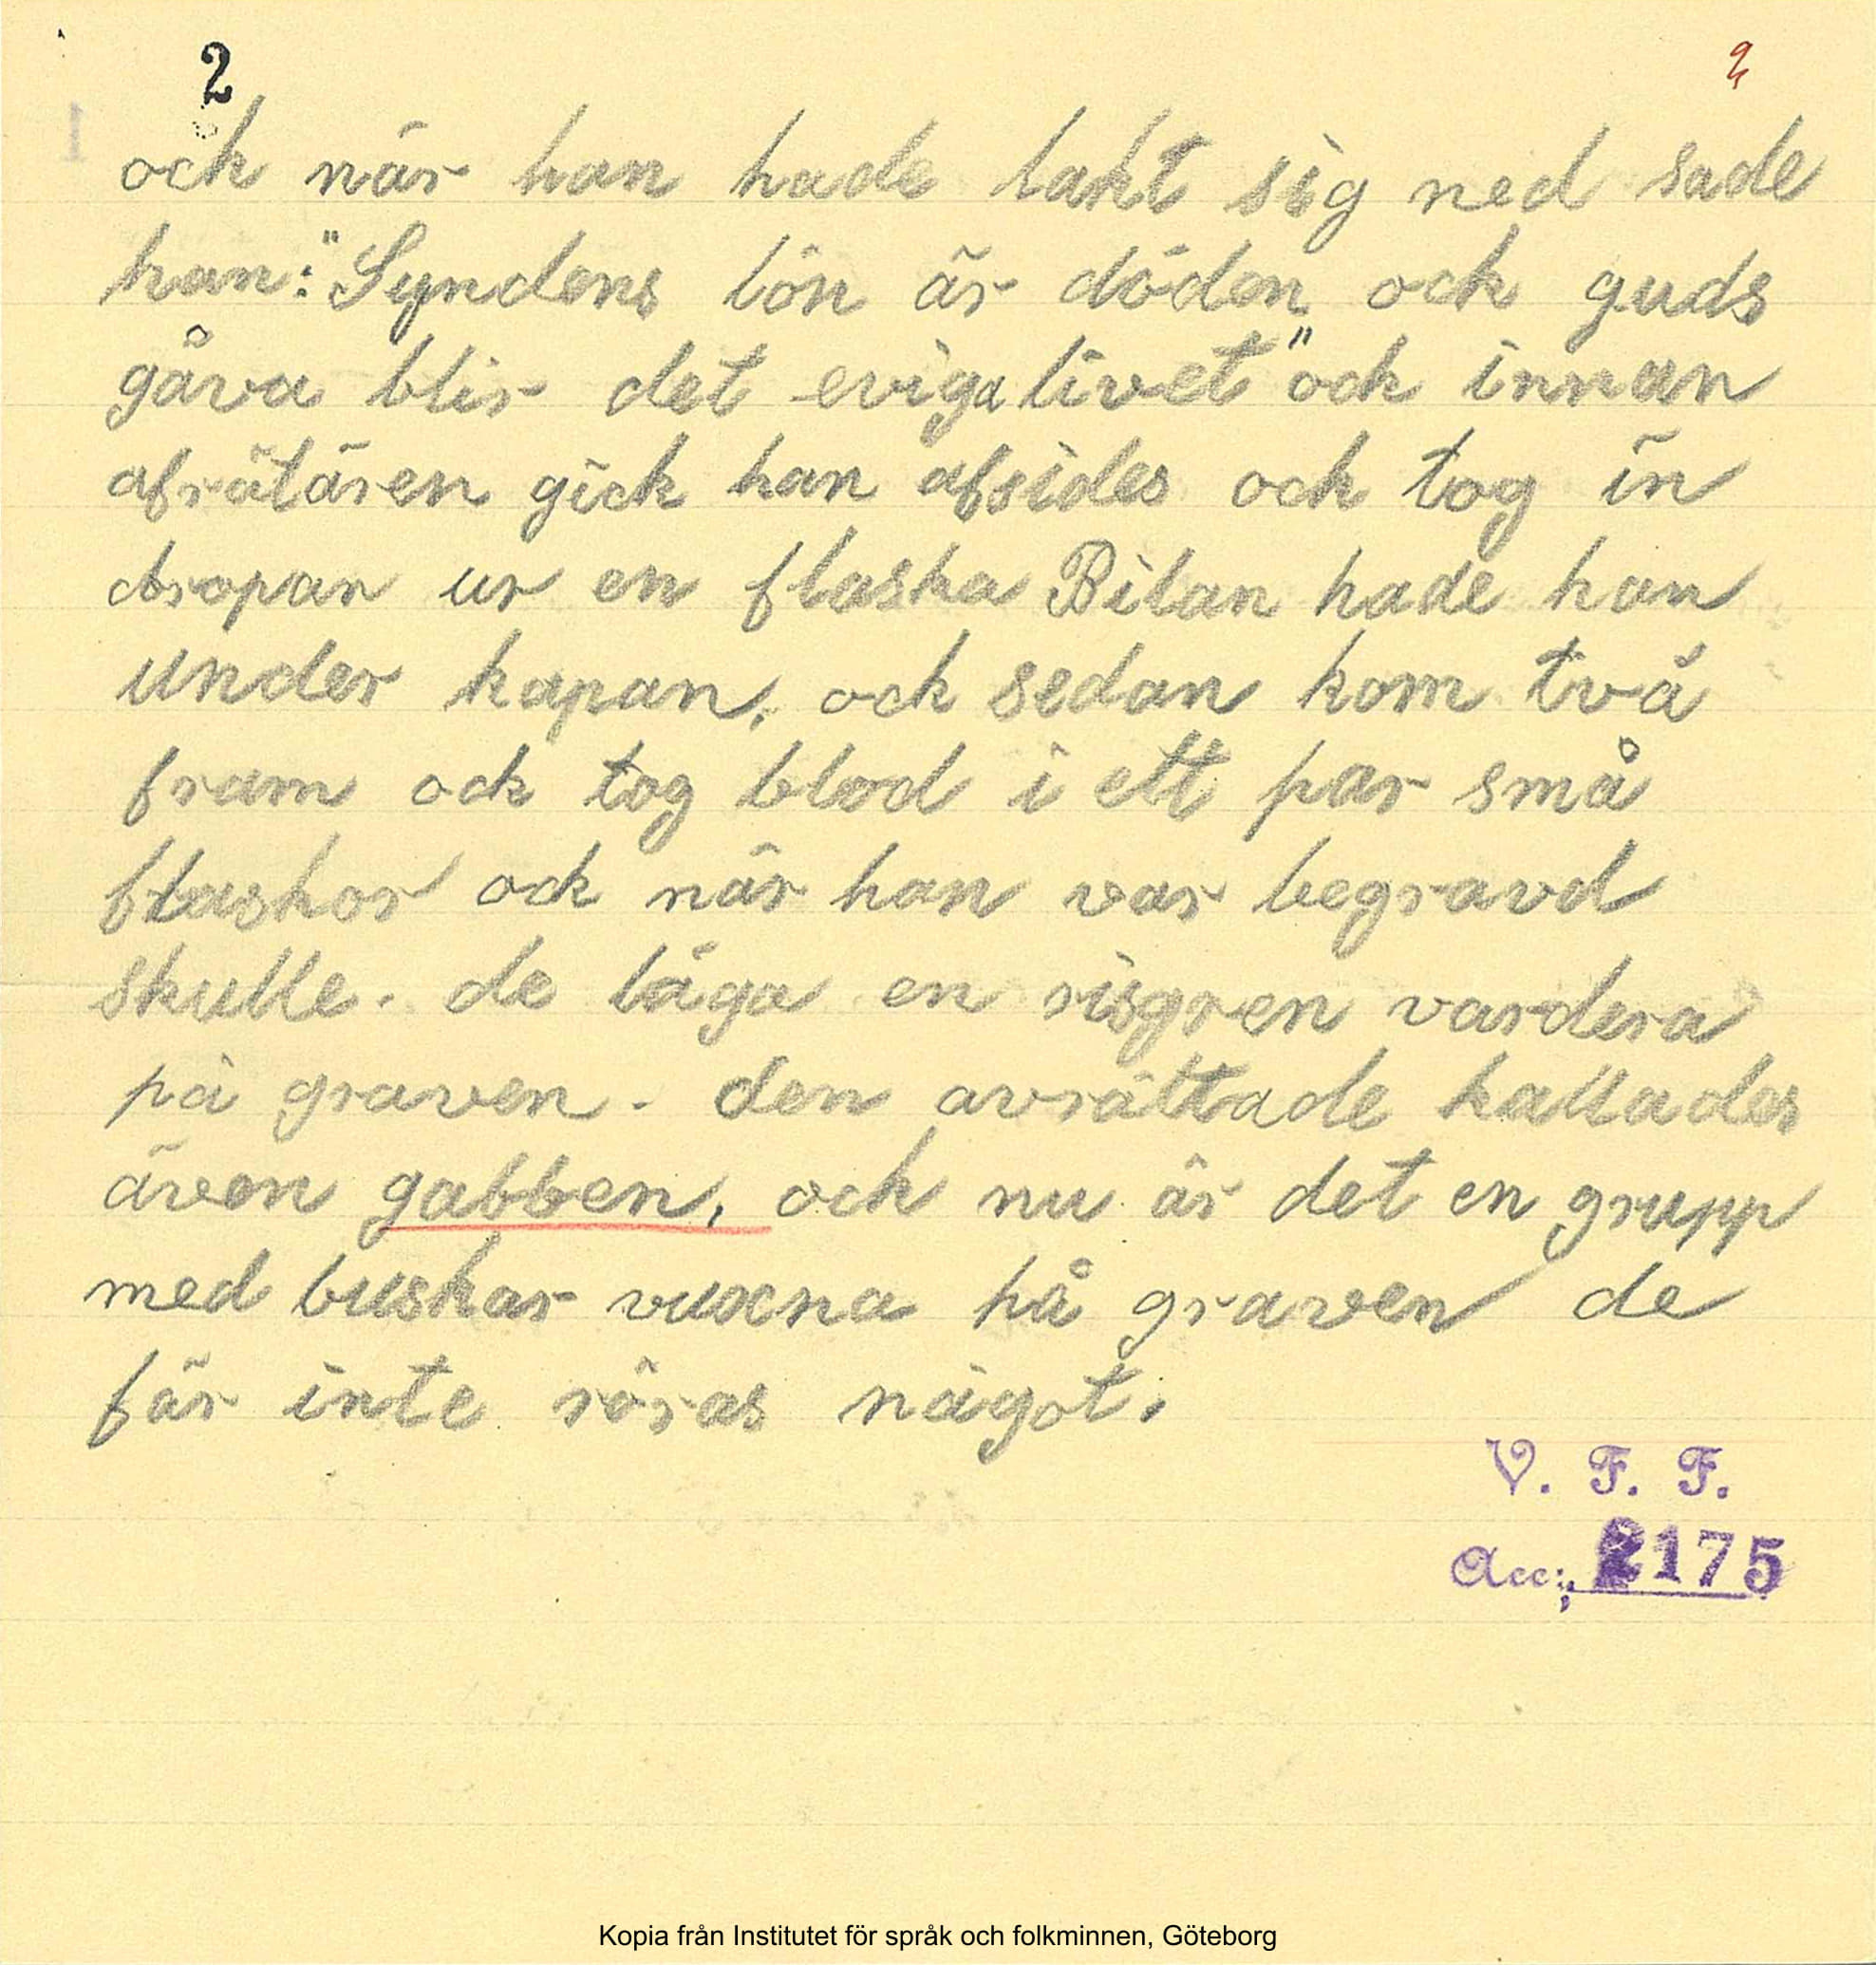 2
2
och när han hade lakt sig ned sade
han: "Syndens lön är döden och guds
gåva blir det eviga livet" och innan
afrätären gick han afsides och tog in
dropar ur en flaska Bilan hade han
under kapan, och sedan kom två
fram och tog blod i ett par små
flaskor och när han var begravd
skulle. de läga en risgren vardera
på graven. den avrättade kallades
även gabben, och nu är det en grupp
med buskar vuxna på graven de
får inte röras något.
V. F. F.
Acc: 2175
Kopia från Institutet för språk och folkminnen, Göteborg